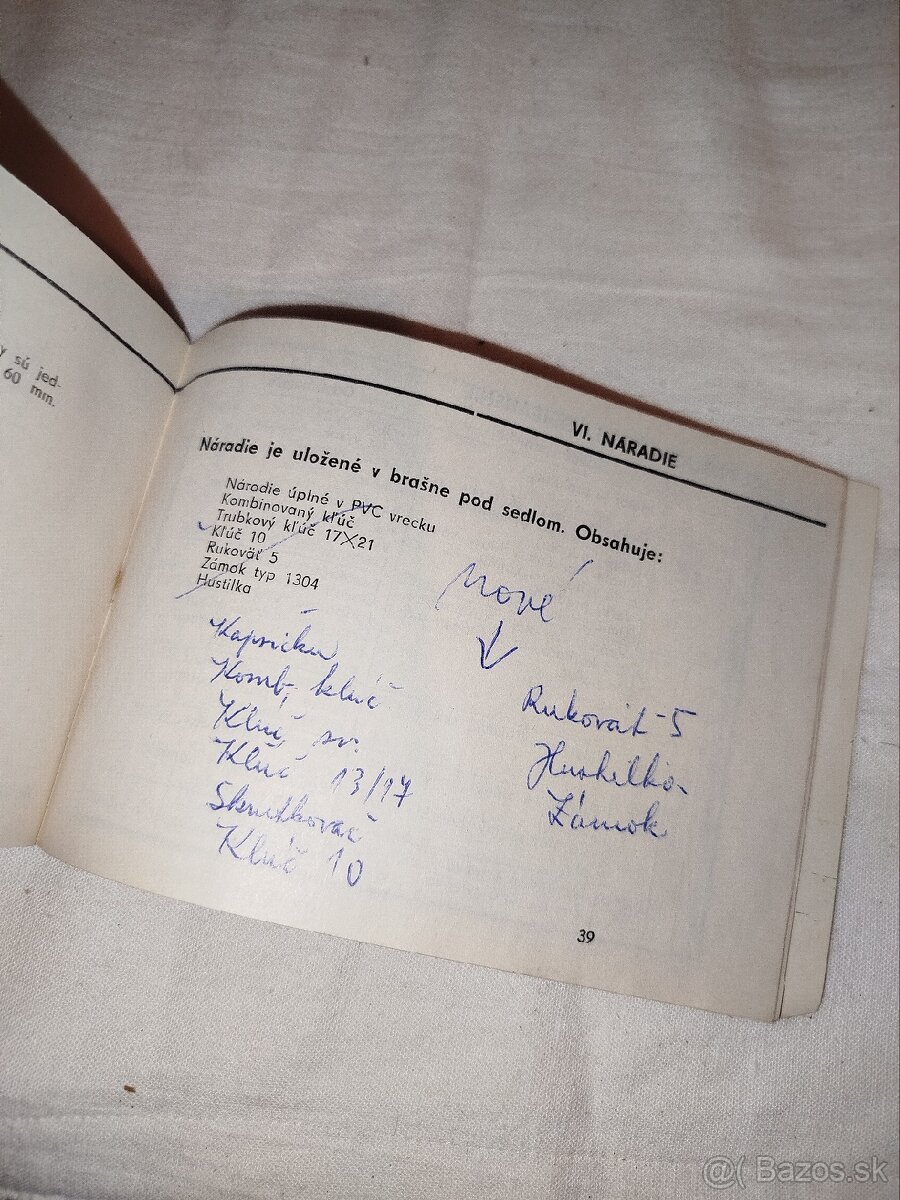 y sú jed-
60 min.
VI. NÁRADIE
Náradie je uložené v brašne pod sedlom. Obsahuje:
Náradie úplné v PVC vrecku
Kombinovaný kľúč
Trubkový kľúč 17X21
Kľúč 10
Rukoväť 5
Zámok typ 1304
Hustilka
Nové
↓
Kapsička
Komb. kluč
Kluč sv.
Kluč 13/17
Skrutkovač
Kluč 10
Rukovät-5
Hustilka
Zámok
39
@( Bazos.sk